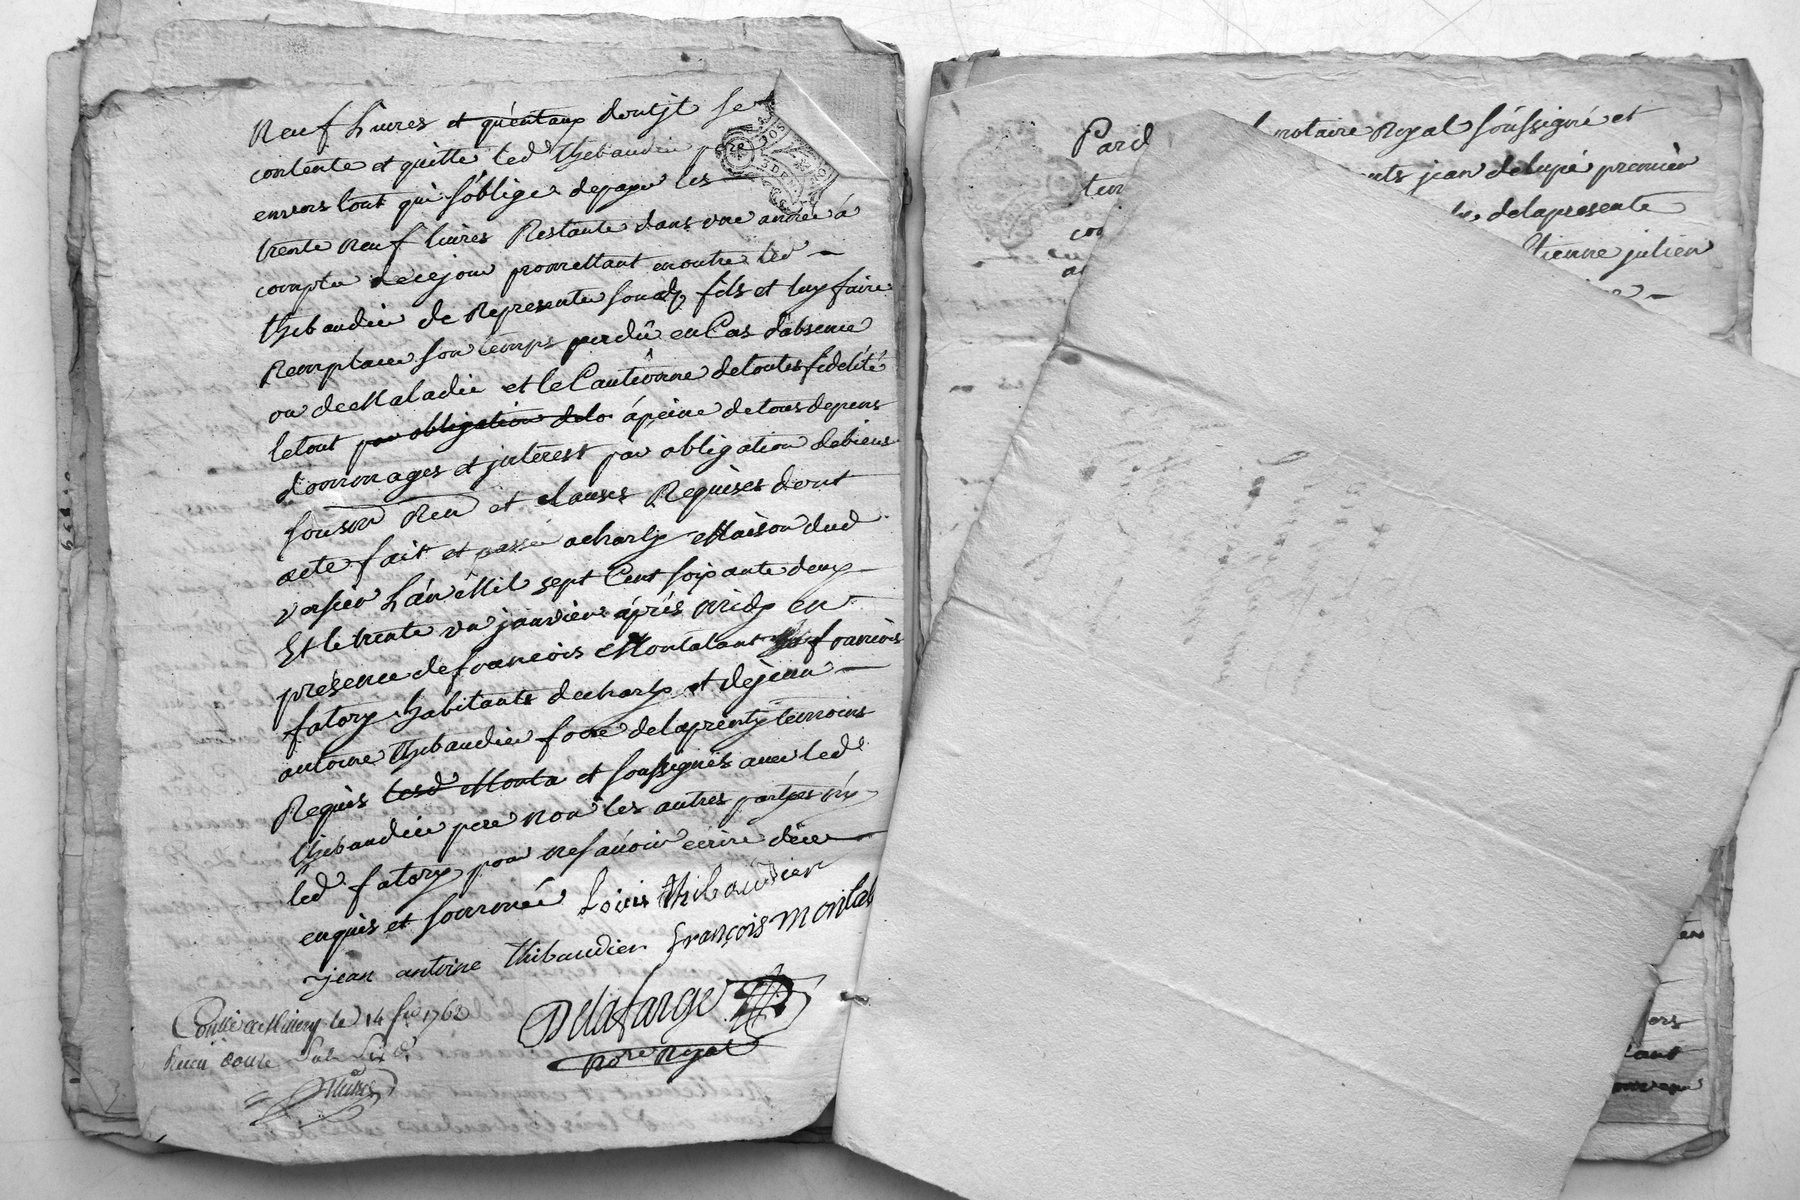 Neuf livres et quéntaux dontjl se
contente et quitte led thibaudier pere
envers tout qui s'oblige depayer les
trente neuf livres Restante dans une année á
compter decejour promettant enoutre led
thibaudier de Representer sondy fils et luy faire
Remplacer son temps perdû en Cas d'absence
ou de Maladie et le Cautionne detoutes fidélité
letout par obligation dela ápeine detousdepens
dommages et jnterest par obligation debiens
et clauses Requises dont
acte fait et passé acharly Maison dud
versier L'an Mil sept Cent soixante deux
Et letrente un janvier áprés midy en
présence defrancois Montalant francois
fatory habitants decharly et dejean
antoine thibaudier frere delaprenty temoins
Requis lesd Monta et soussignés avec led
thibaudier pere non les autres parties ny
led fatory pour nesavoir écrire déce
enquis et sommé Louis thibaudier
jean antoine thibaudier françois montal
Delafarge
Nore Royal
le 14 1762
Recu douze
SOLS
DEN
Pard notaire Royal soussigné et
jean delupé premier
delapresente
Etienne julien